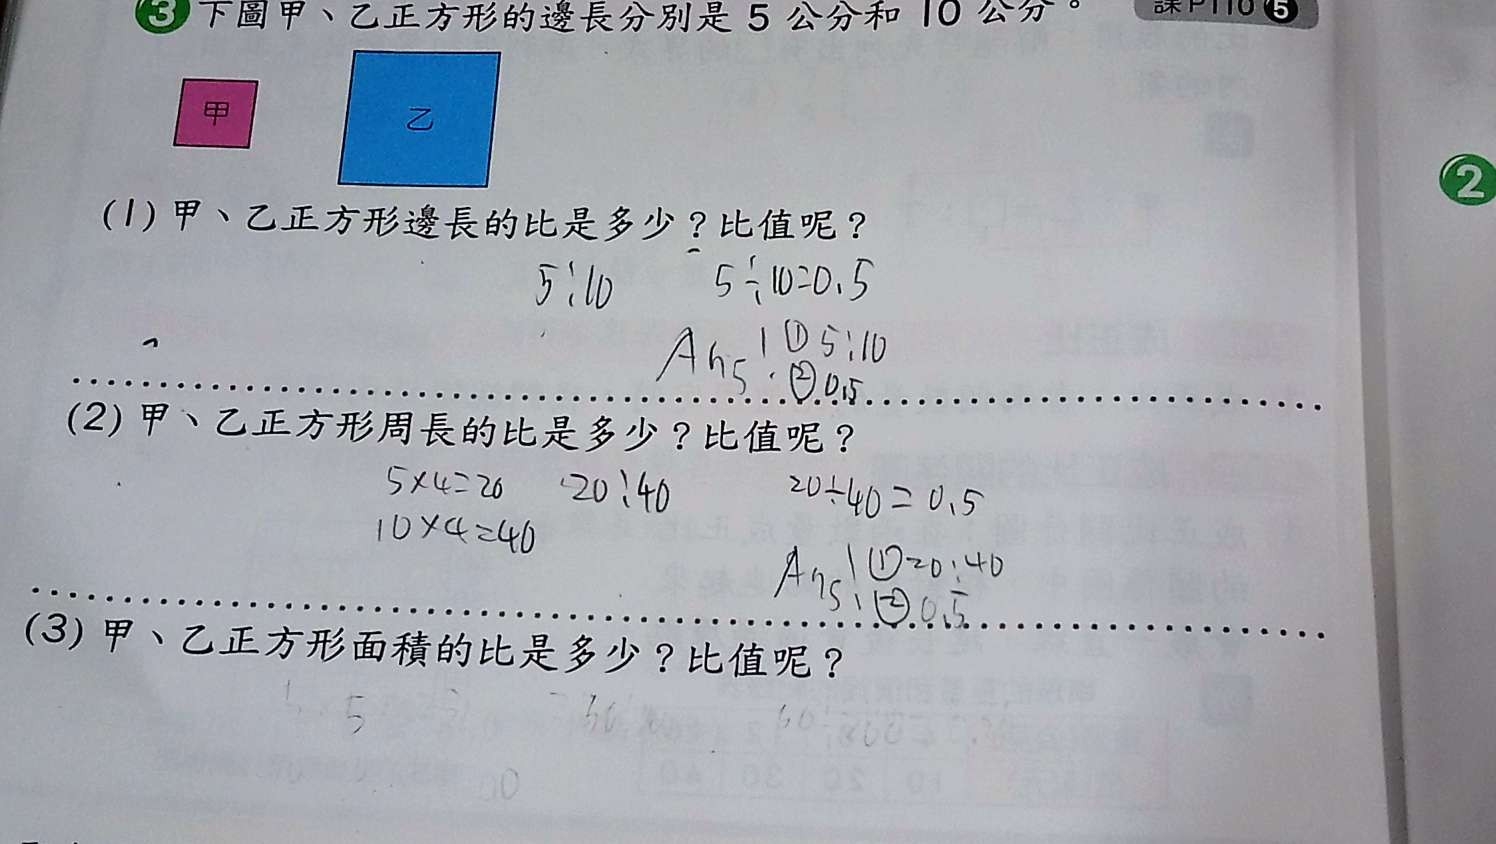 3 下圖甲、乙正方形的邊長分別是 5 公分和 10 公分。 課P110 5
甲 乙
2
(1) 甲、乙正方形邊長的比是多少？比值呢？
5:10 5÷10=0.5
Ans: ① 5:10
② 0.5
(2) 甲、乙正方形周長的比是多少？比值呢？
5×4=20 20:40 20÷40=0.5
10×4=40
Ans: ① 20:40
② 0.5
(3) 甲、乙正方形面積的比是多少？比值呢？